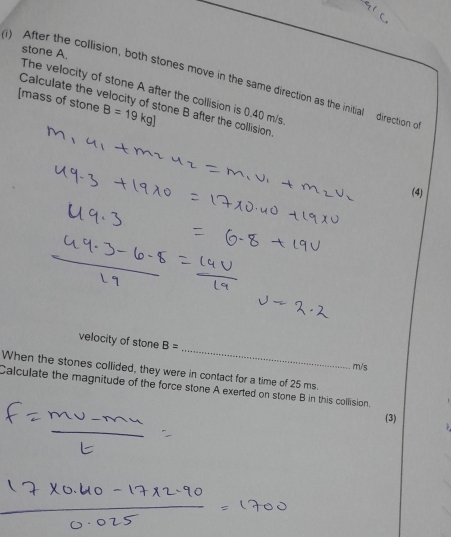 (i) After the collision, both stones move in the same direction as the initial direction of
stone A.
The velocity of stone A after the collision is 0.40 m/s.
Calculate the velocity of stone B after the collision.
[mass of stone B = 19 kg]
(4)
m₁ u₁ + m₂ u₂ = m₁ v₁ + m₂ v₂
49.3 + 19x0 = 17x0.40 + 19xv
49.3 = 6.8 + 19v
49.3-6.8 = 19v
19 19
v = 2.2
velocity of stone B = ........................................ m/s
When the stones collided, they were in contact for a time of 25 ms.
Calculate the magnitude of the force stone A exerted on stone B in this collision.
(3)
F = mv-mu =
t
17 x0.40 - 17x2.90 = 1700
0.025